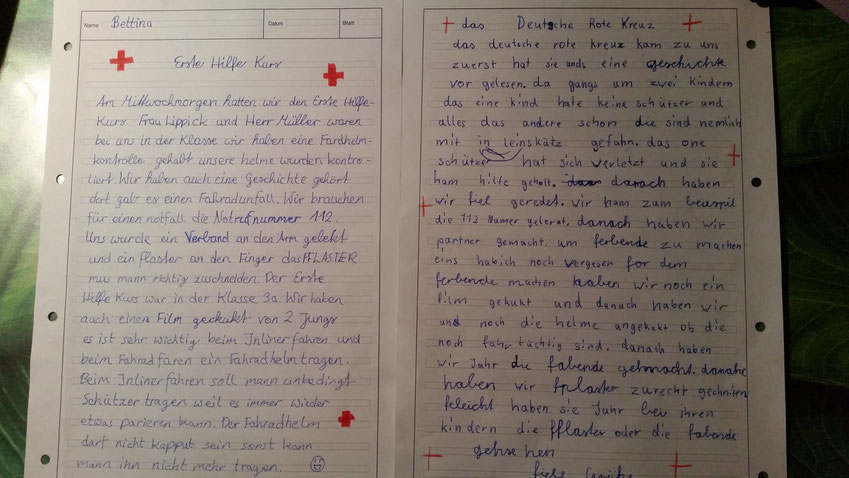 Name Bettina Datum Blatt
Erste Hilfe Kurs
Am Mittwochmorgen hatten wir den Erste Hilfe-
Kurs. Frau Lippick und Herr Müller waren
bei uns in der Klasse wir haben eine Fardhelm-
kontrolle gehabt unsere helme wurden kontro-
liert. Wir haben auch eine Geschichte gehört
dort gab es einen Fahradunfall. Wir brauchen
für einen notfall die Notrufnummer 112.
Uns wurde ein Verband an den Arm gelekt
und ein Plaster an den Finger das PFLASTER
mus mann richtig zuschneiden. Der Erste
Hilfe Kurs war in der Klasse 3a. Wir haben
auch einen Film geckukt von 2 Jungs
es ist sehr wichtig beim Inliner fahren und
beim Fahrad faren ein Fahradhelm tragen.
Beim Inlinerfahren soll mann unbedingt
Schützer tragen weil es immer wieder
etwas parieren kann. Der Fahradhelm
darf nicht kapput sein sonst kann
mann ihn nicht mehr tragen.
das Deutsche Rote Kreuz
das deutsche rote kreuz kam zu uns
zuerst hat sie unds eine geschichte
vor gelesen. da gangs um zwei kindern
das eine kind hate keine schützer und
alles das andere schon die sind nemlich
mit in leinskätz gefahn. das one
schützer hat sich verletzt und sie
ham hilfe geholt. danach haben
wir fiel geredet. wir ham zum beuspil
die 112 Numer gelernt. danach haben wir
partner gemacht. um ferbende zu machen
eins habich noch vergesen for dem
ferbende machen haben wir noch ein
film gekukt und danach haben wir
und noch die helme angekukt ob die
noch fahr tüchtig sind. danach haben
wir Jahr die fabende gemacht. danach
haben wir pflaster zurecht gechniten
feleicht haben sie Jahr bei ihren
kindern die pflaster oder die fabende
gehsehen
fiele